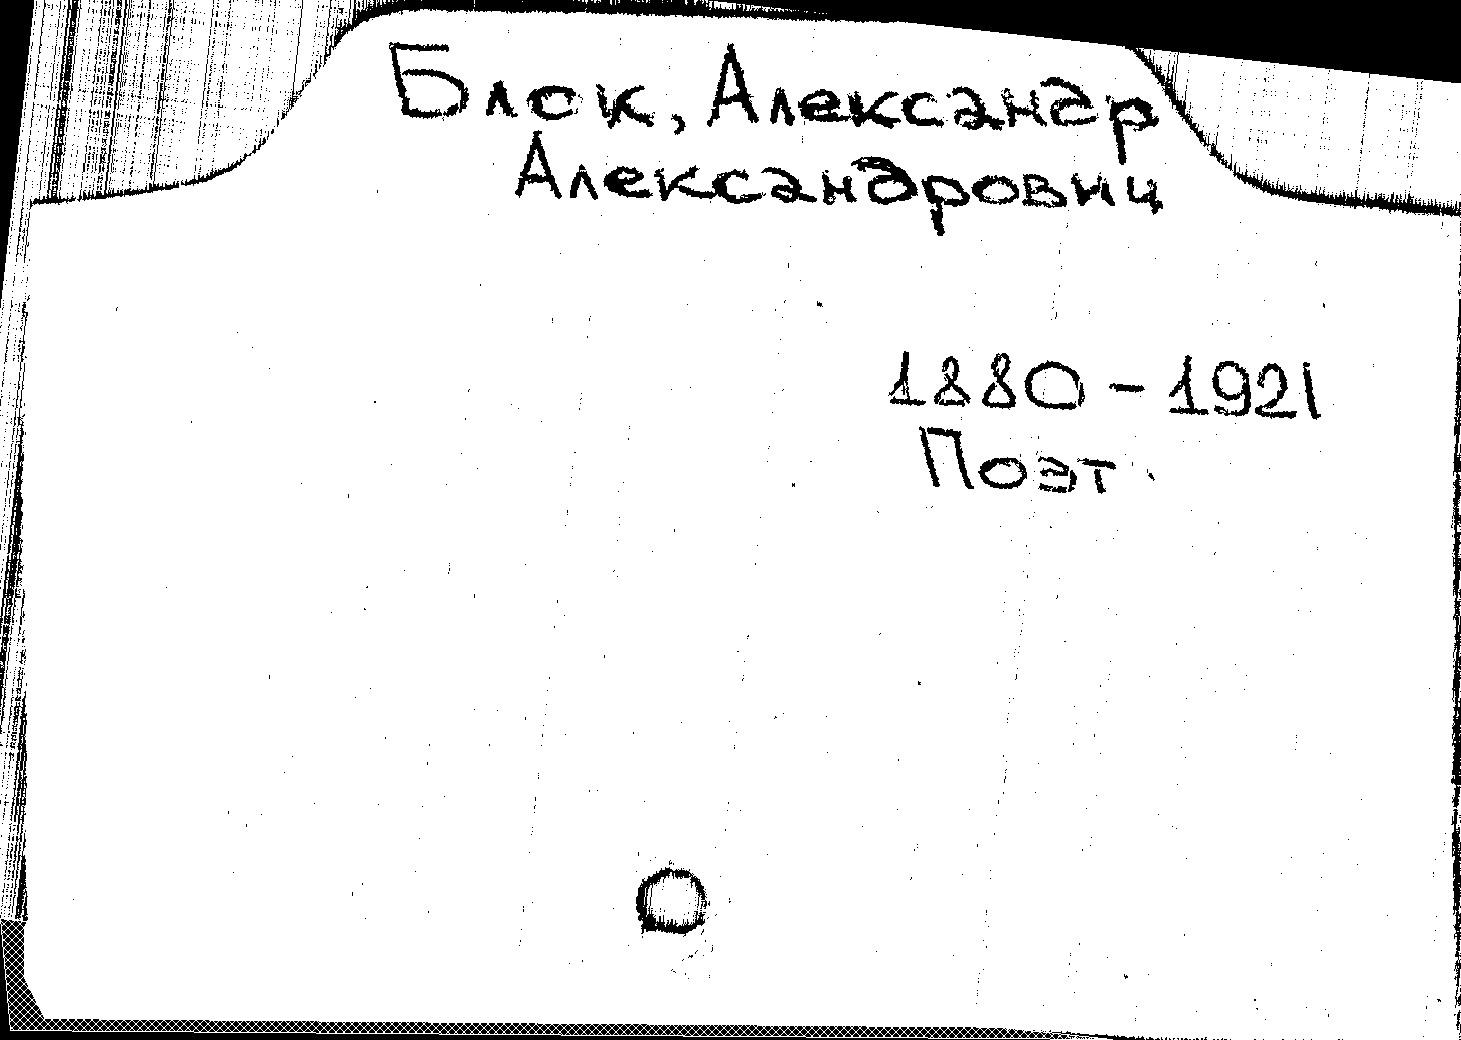 Блок, Александр
Александрович
1880-1921
Поэт.